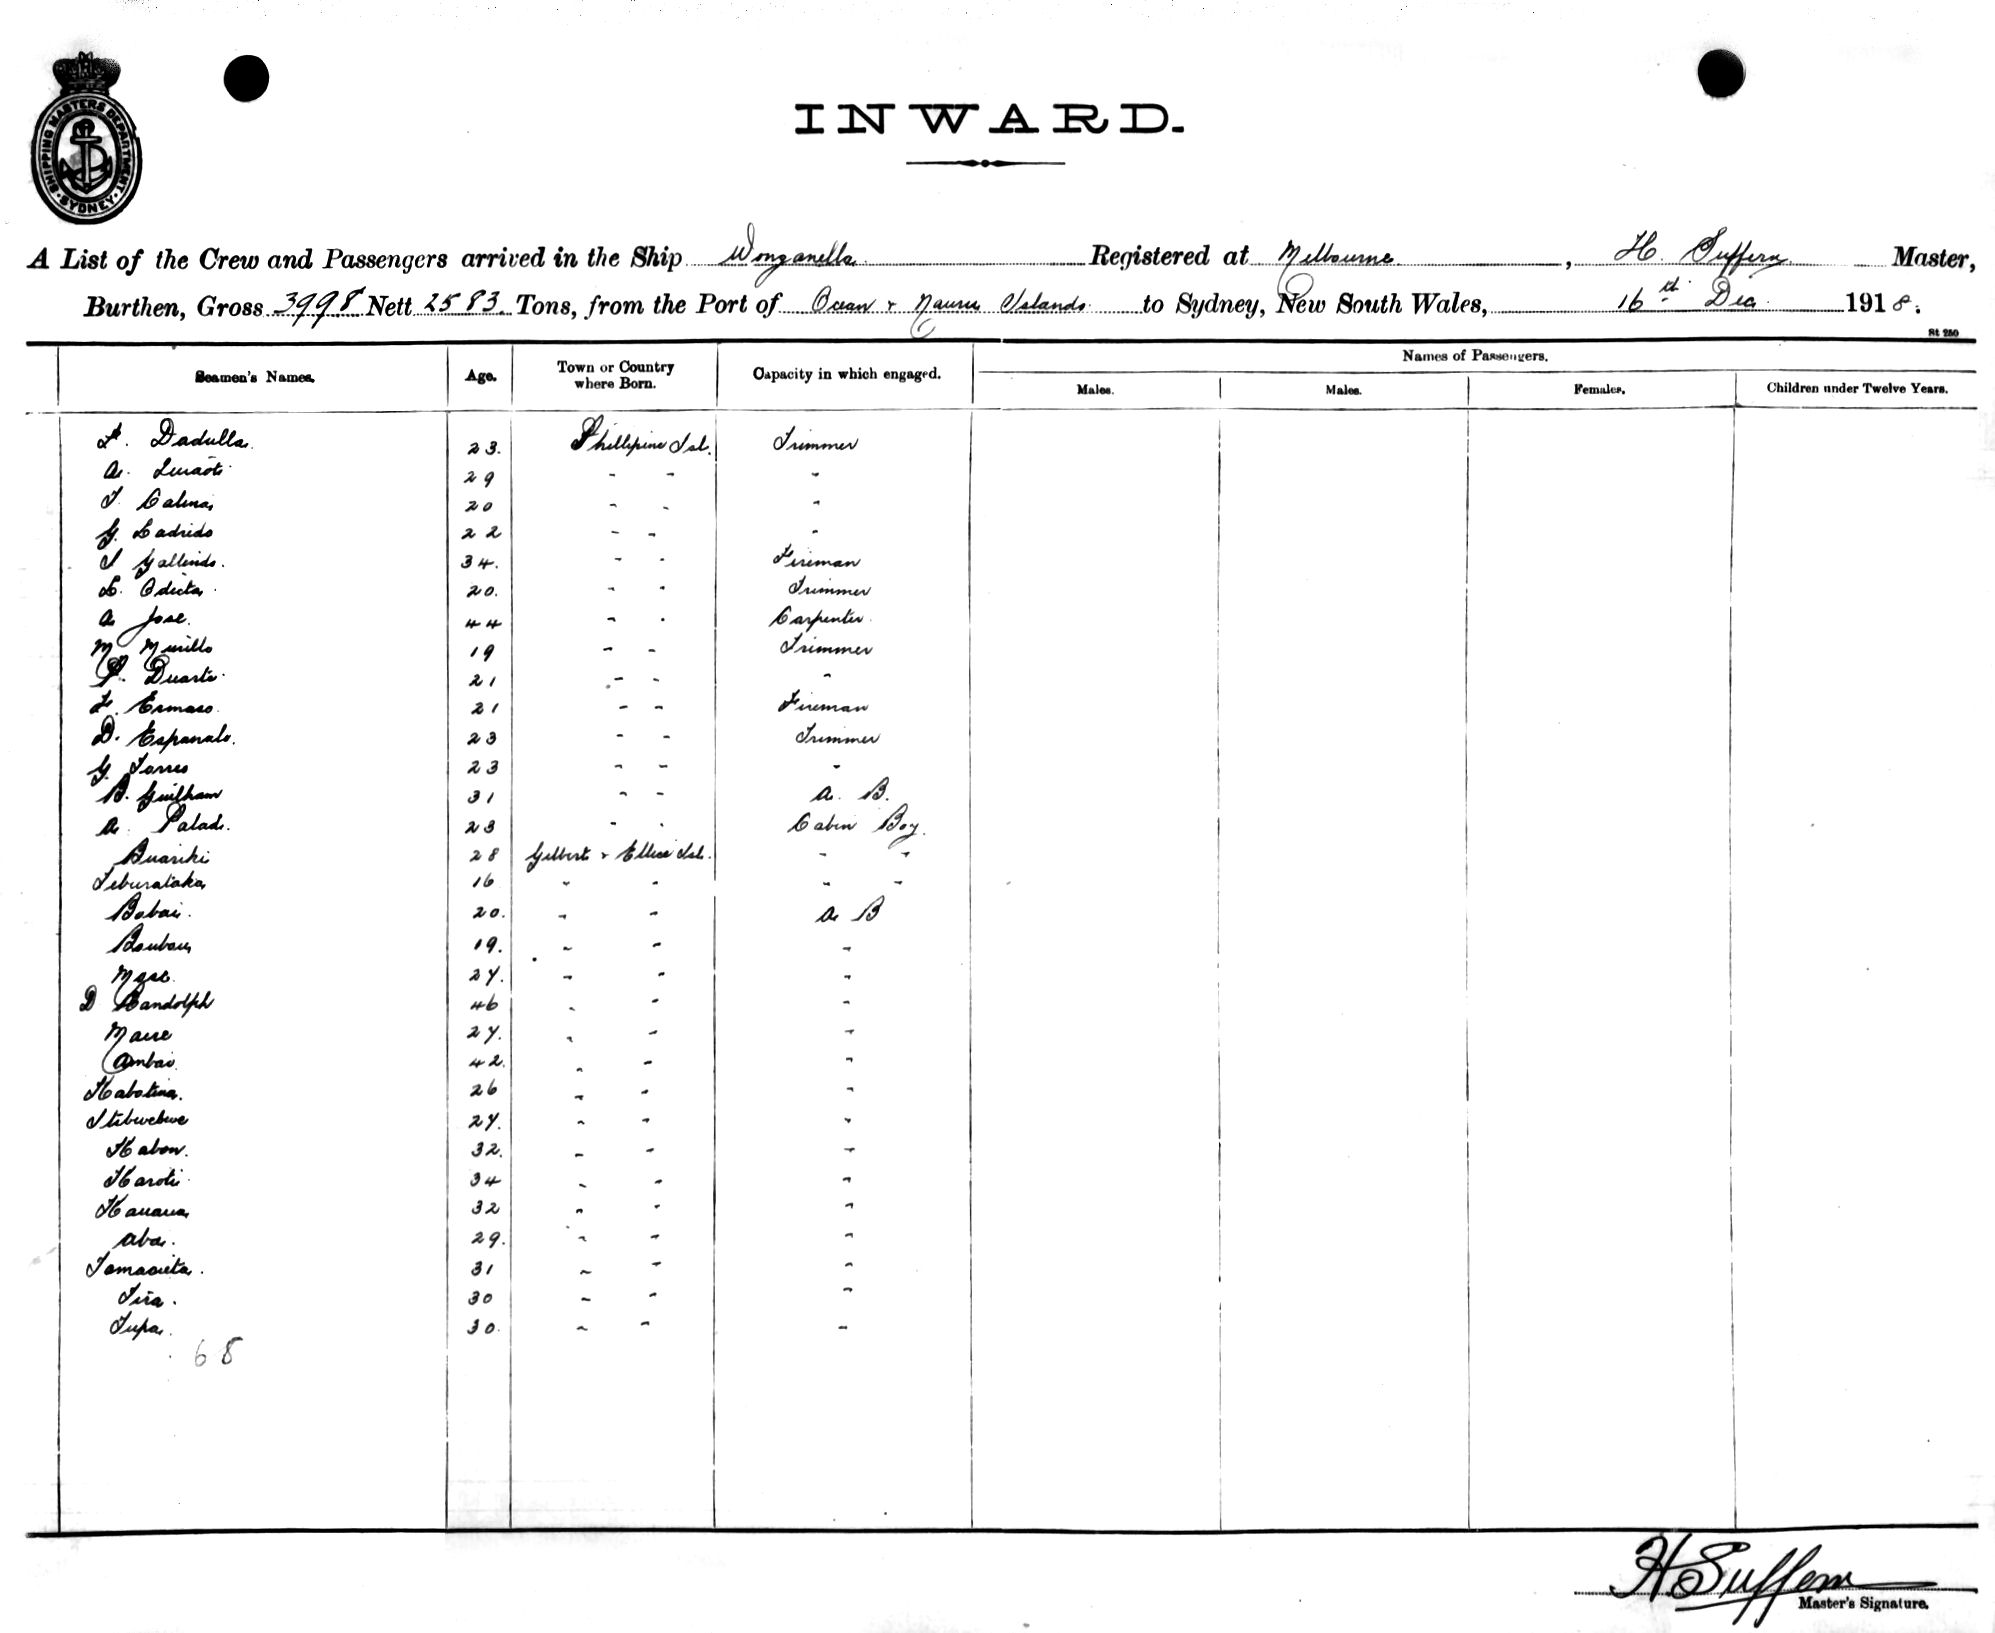 SHIPPING MASTERS DEPARTMENT
SYDNEY
INWARD.
A List of the Crew and Passengers arrived in the Ship Wonganella Registered at Melbourne, H. Suffern Master,
Burthen, Gross 3998 Nett 2583 Tons, from the Port of Ocean & Nauru Islands to Sydney, New South Wales, 16th Dec 1918.
St 250
Seamen's Names. Age. Town or Country where Born. Capacity in which engaged. Names of Passengers.
Males. Males. Females. Children under Twelve Years.
F. Dadulla. 23. Phillipine Isl. Trimmer
A. 29 " " "
T. Calina 20 " " "
G. Ladrido 22 " " "
S Gallindo. 34. " " Fireman
L. Odicta 20. " " Trimmer
A Jose. 44 " " Carpenter.
M Murillo 19 " " Trimmer
P. Duarte 21 " " "
F. Ermaso. 21 " " Fireman
D. Espanalo. 23 " " Trimmer
G. Torres 23 " " "
B. Guilham 31 " " A. B.
A. Palad. 23 " " Cabin Boy.
Buariki 28 Gilbert & Ellice Isl. " "
Teburataka 16 " " " "
Bobai. 20. " " A B
Baubau 19. " " "
Mose. 27. " " "
D Randolph 46 " " "
Maere 27. " " "
Ambai 42. " " "
Kabotina. 26 " " "
Itibwebwe 27. " " "
Kabon. 32. " " "
Karoti 34 " " "
Kauaua 32 " " "
Aba. 29. " " "
Tamaoieta. 31 " " "
Tira. 30 " " "
Tupa. 30. " " "
68
H Suffern
Master's Signature.